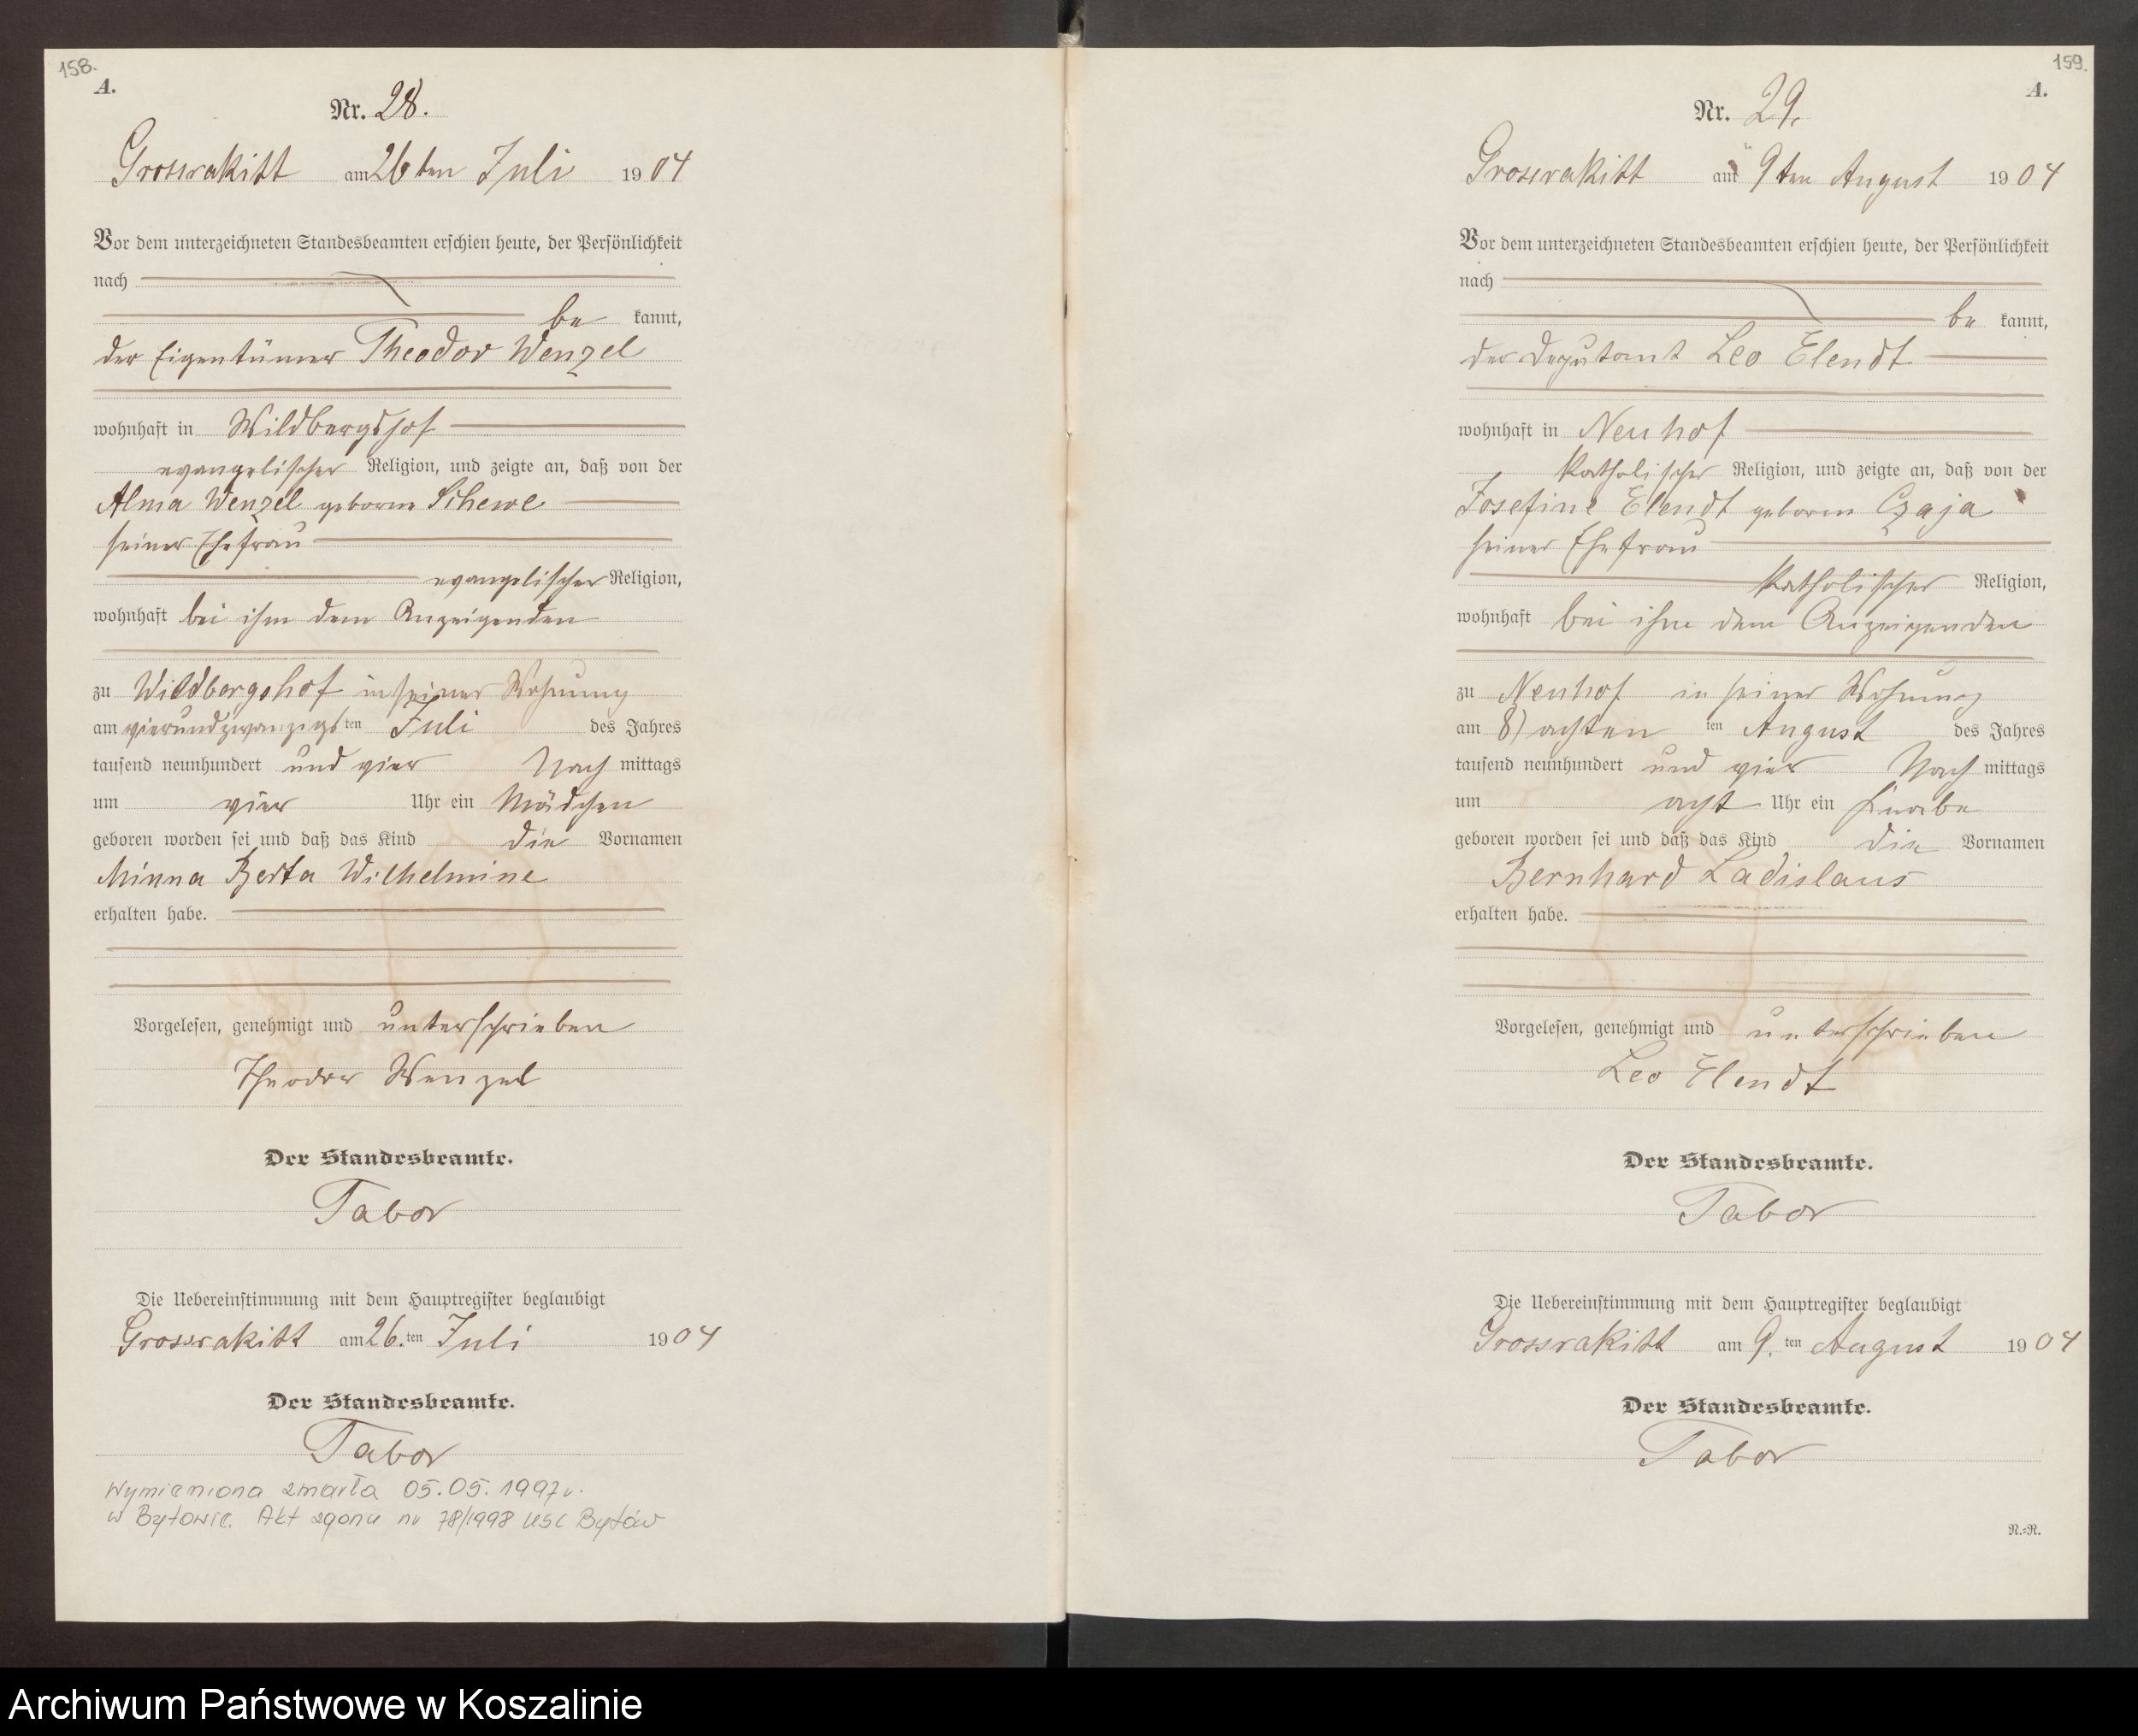 158.
A.
Nr. 28.
Grossrakitt am 26ten Juli 1904
Vor dem unterzeichneten Standesbeamten erschien heute, der Persönlichkeit
nach
be kannt,
der Eigentümer Theodor Wenzel
wohnhaft in Wildbergshof
evangelischer Religion, und zeigte an, daß von der
Alma Wenzel geborne Schewe
seiner Ehefrau
evangelischer Religion,
wohnhaft bei ihm dem Anzeigenden
zu Wildbergshof in seiner Wohnung
am vierundzwanzigsten Juli des Jahres
tausend neunhundert und vier Nach mittags
um vier Uhr ein Mädchen
geboren worden sei und daß das Kind die Vornamen
Minna Berta Wilhelmine
erhalten habe.
Vorgelesen, genehmigt und unterschrieben
Theodor Wenzel
Der Standesbeamte.
Tabor
Die Uebereinstimmung mit dem Hauptregister beglaubigt
Grossrakitt am 26. ten Juli 1904
Der Standesbeamte.
Tabor
Wymieniona zmarła 05.05.1997r.
w Bytowie. Akt zgonu nr 78/1998 USC Bytów
159.
A.
Nr. 29.
Grossrakitt am 9ten August 1904
Vor dem unterzeichneten Standesbeamten erschien heute, der Persönlichkeit
nach
be kannt,
der Deputant Leo Elendt
wohnhaft in Neuhof
katholischer Religion, und zeigte an, daß von der
Josefine Elendt geborne Czaja
seiner Ehefrau
katholischer Religion,
wohnhaft bei ihm dem Anzeigenden
zu Neuhof in seiner Wohnung
am 8) achten ten August des Jahres
tausend neunhundert und vier Nach mittags
um acht Uhr ein Knabe
geboren worden sei und daß das Kind die Vornamen
Bernhard Ladislaus
erhalten habe.
Vorgelesen, genehmigt und unterschrieben
Leo Elendt
Der Standesbeamte.
Tabor
Die Uebereinstimmung mit dem Hauptregister beglaubigt
Grossrakitt am 9. ten August 1904
Der Standesbeamte.
Tabor
N.-R.
Archiwum Państwowe w Koszalinie